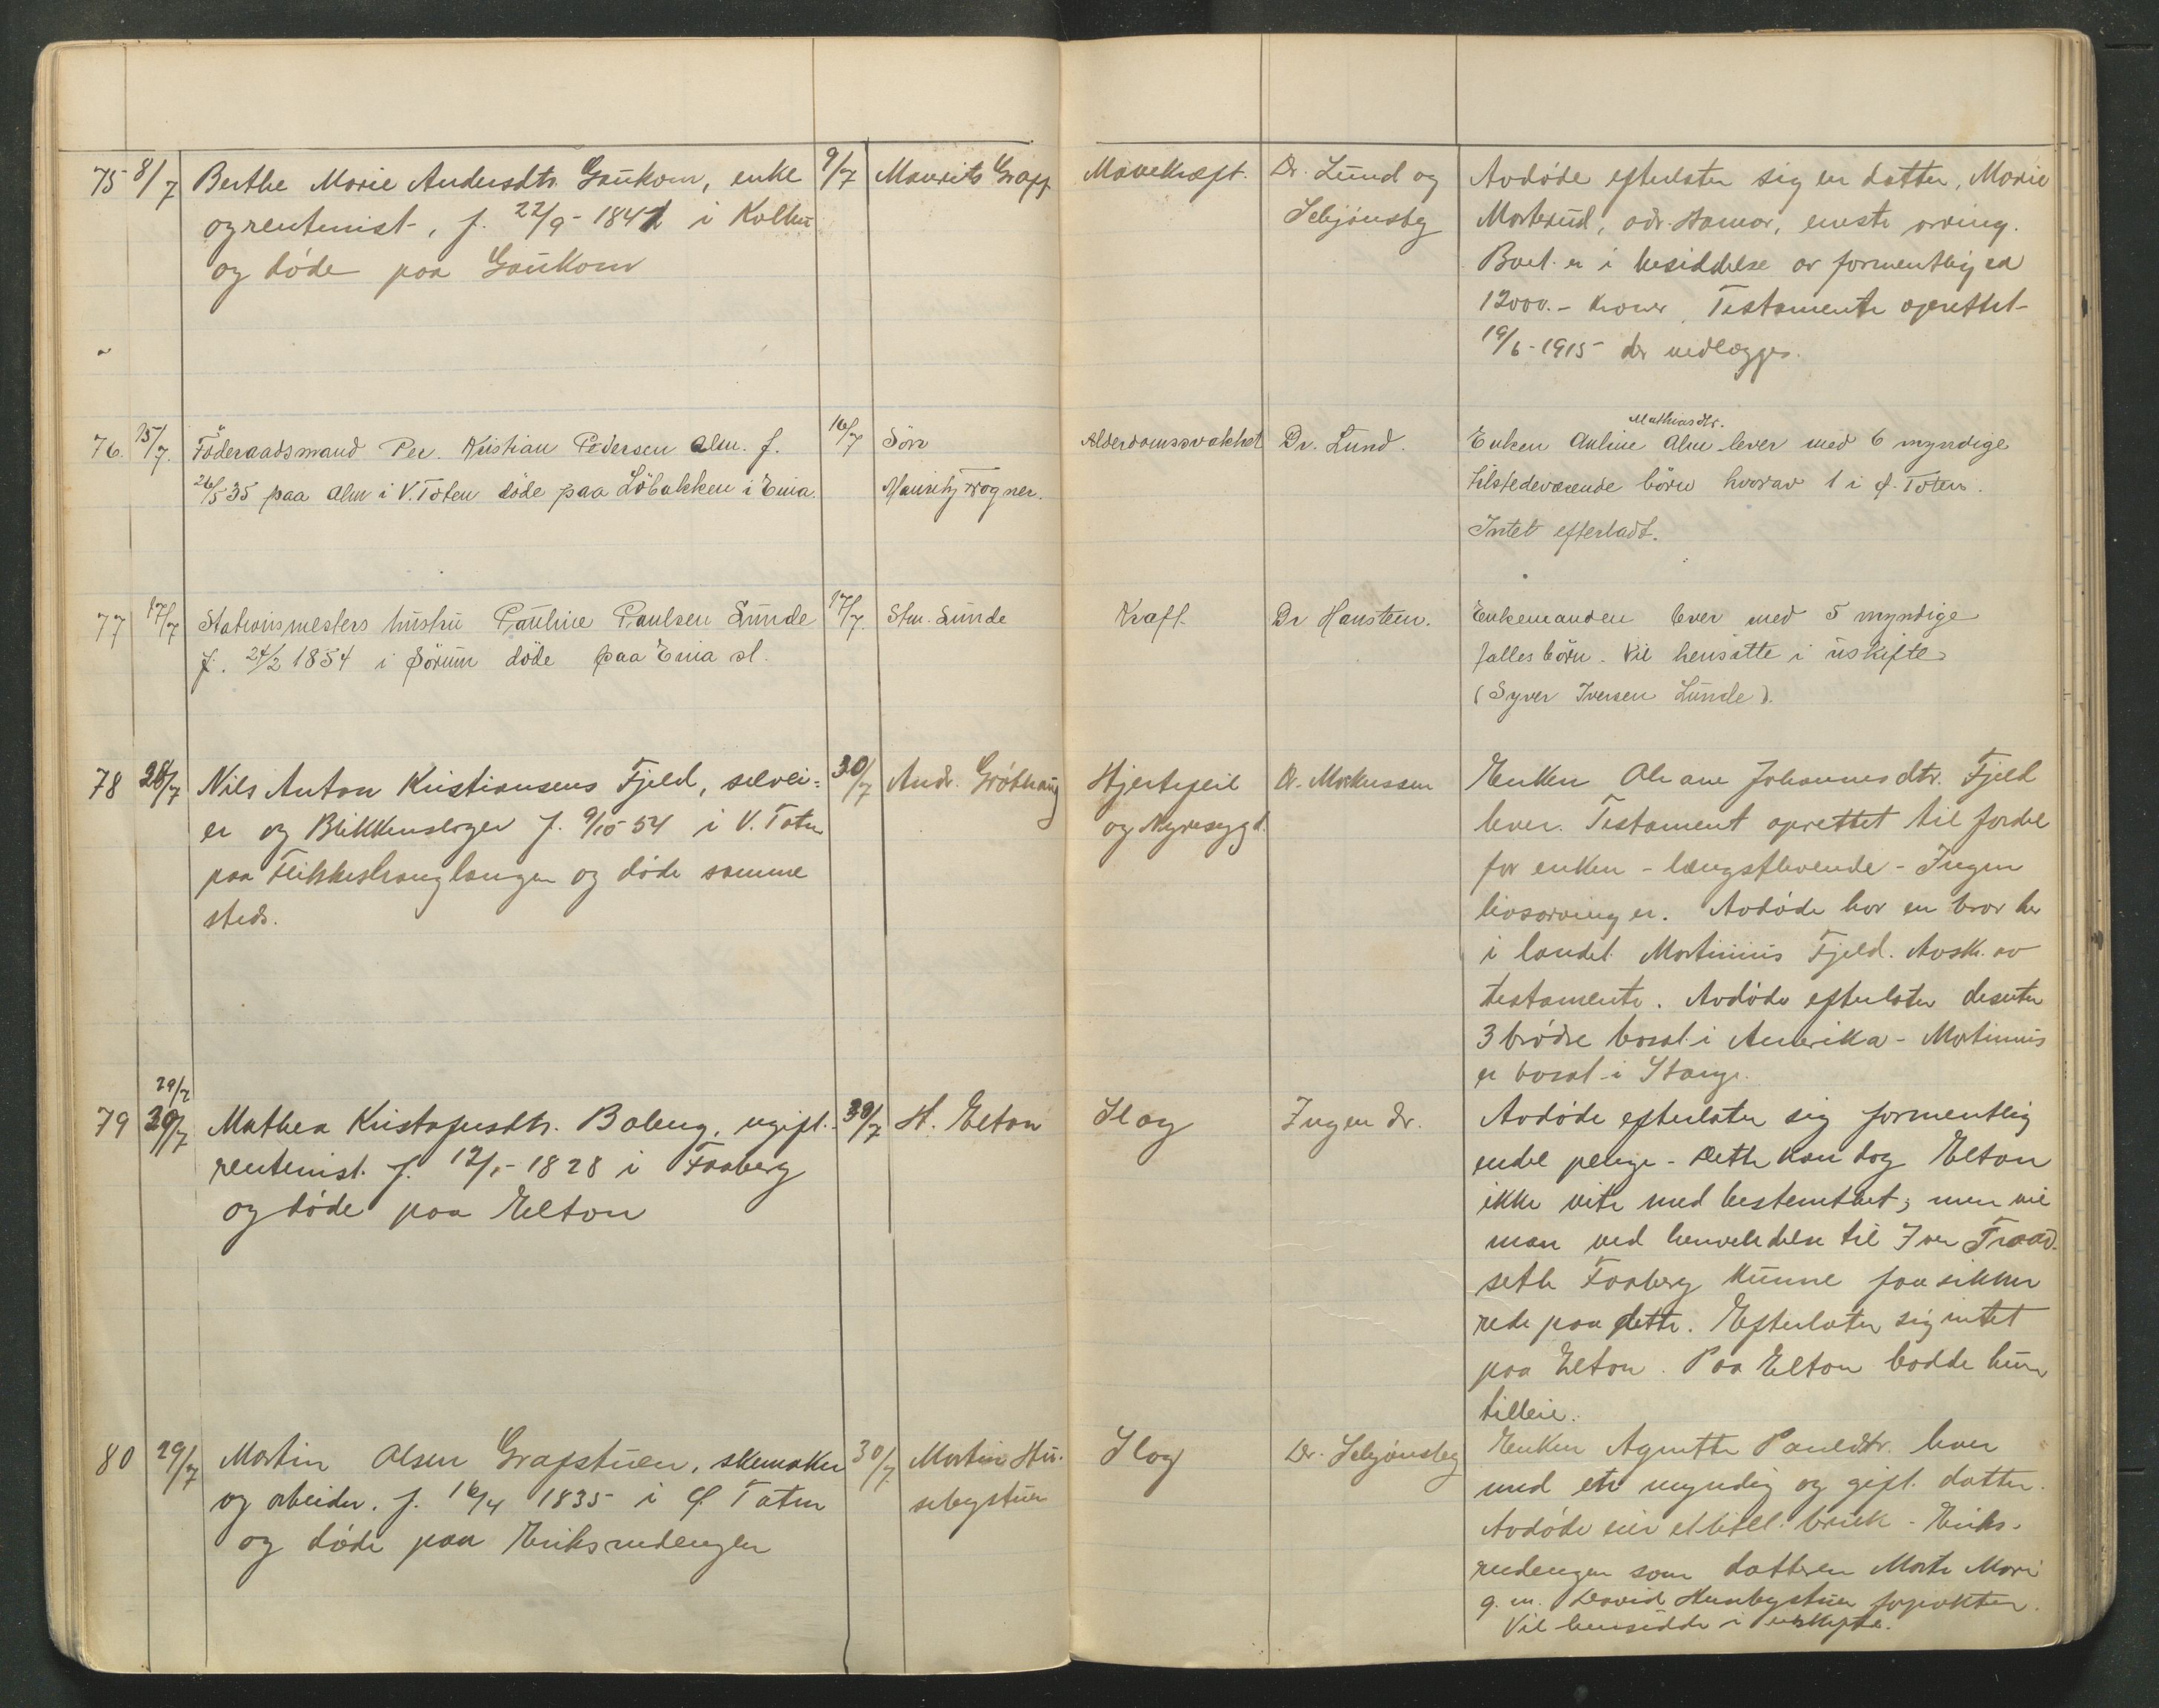 75 8/7 Berthe Marie Andersdtr. Gaukom, enke 9/7 Maurits Graff Mavekræft. Dr. Lund og Avdøde efterlater sig en datter, Marie
og rentenist, f. 22/9-1841 i Kolbu Schjønsby Morterud, adr. Hamar, eneste arving.
og døde paa Gaukom Boet er i besiddelse av formentlig ca
12000.- kroner. Testamente oprettet
19/6-1915 der vedlægges.
76. 15/7. Föderaadsmand Per. Kristian Pedersen Alm. f. 16/7 Sön Alderdomssvakhet Dr. Lund. Enken Auline Mathiasdtr. Alm lever med 6 myndige
26/5 35 paa Alm i V. Toten döde paa Löbakken i Eina. Mauritz Wogner. tilstedeværende börn hvorav 1 i Ø. Toten.
Intet efterladt.
77 17/7 Stationsmesters hustru Pauline Paulsen Lunde 17/7. Stm. Lunde Kræft. Dr Hansteen. Enkemanden lever med 5 myndige
f. 24/2 1854 i Sörum döde paa Eina st. fælles börn. Vil hensitte i uskifte
(Syver Iversen Lunde).
78 28/7 Nils Anton Kristiansens Fjeld, selvei- 30/7 Andr. Gröthaug Hjertefeil Dr. Markussen Enken Oleane Johannesdtr. Fjeld
er og Blikkenslager f. 9/10 54 i V. Toten og Nyresygd. lever. Testament oprettet til fordel
paa Flikkeshauglangen og døde samme for enken - længstlevende - Ingen
steds. livsarvinger. Avdøde har en bror her
i landet Martinius Fjeld. Avsk. av
testamente. Avdøde efterlater desuten
3 brødre bosat i Amerika - Martinius
er bosat i Stange.
29/7
79 30/7 Mathea Kristofersdtr. Baleng, ugift. 30/7 H. Elton Slag Ingen dr. Avdøde efterlater sig formentlig
rentenist. f. 12/1-1828 i Faaberg endel penge - Dette kan dog Elton
og døde paa Elton ikke vite med bestemthet; men vil
man ved henvendelse til Iver Traad-
seth Faaberg kunne faa sikker
rede paa dette. Efterlater sig intet
paa Elton. Paa Elton bodde hun
tilleie.
80 29/7 Martin Olsen Grafstuen, skomaker 30/7 Martin Hu- Slag Dr. Schjønsby Enken Agnethe Paulsdtr. lever
og arbeider. f. 16/4 1835 i Ø. Toten sebystuen med en myndig og gift datter.
og døde paa Eriksrudengen Avdøde eier et litet bruk - Eriks-
rudengen som datteren Marte Mari
g. m. David Hunbystuen forpakter.
Vil hensidde i uskiftet.